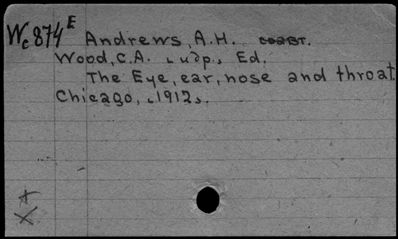 Wc874E Andrews, A.H.
Wood, C.A. Ed.
The Eye, ear, nose and throat
Chicago, 1912.